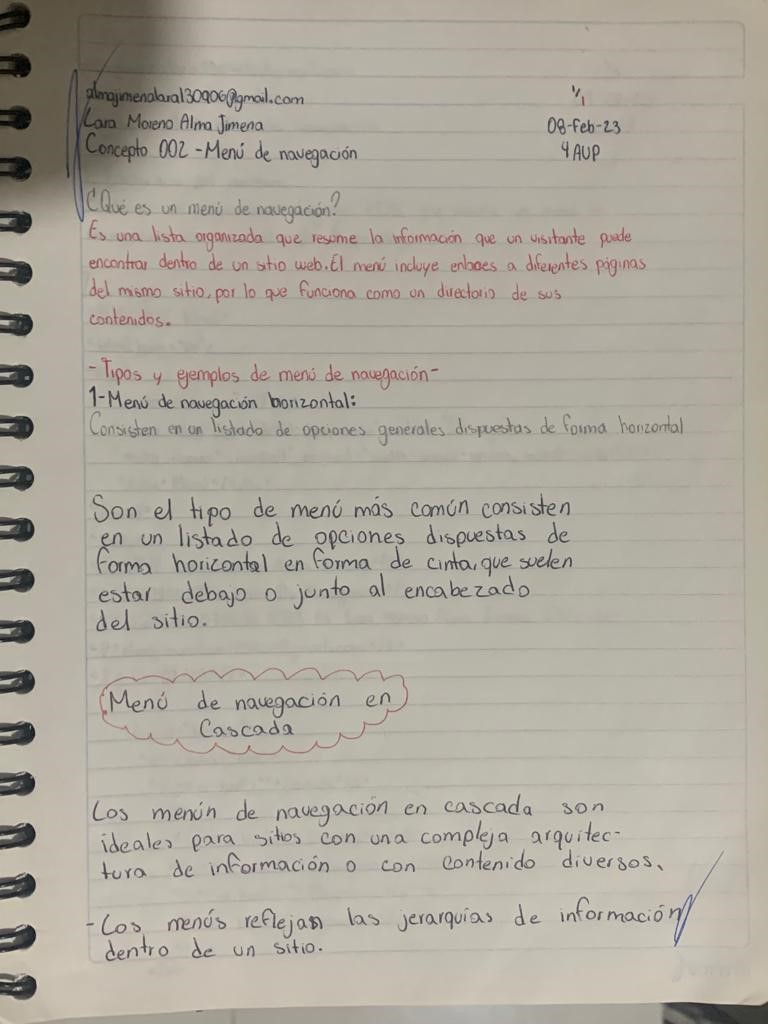 almajimenalara130906@gmail.com
1/1
Lara Moreno Alma Jimena
08-Feb-23
Concepto 002 - Menú de navegación
4 AUP
¿Qué es un menú de navegación?
Es una lista organizada que resume la información que un visitante puede
encontrar dentro de un sitio web. El menú incluye enlaces a diferentes páginas
del mismo sitio, por lo que funciona como un directorio de sus
contenidos.
- Tipos y ejemplos de menú de navegación -
1- Menú de navegación horizontal:
Consisten en un listado de opciones generales dispuestas de forma horizontal
Son el tipo de menú más común consisten
en un listado de opciones dispuestas de
forma horizontal en forma de cinta, que suelen
estar debajo o junto al encabezado
del sitio.
Menú de navegación en
Cascada
Los menún de navegación en cascada son
ideales para sitios con una compleja arquitec-
tura de información o con contenido diversos.
- Los menús reflejan las jerarquías de información
dentro de un sitio.